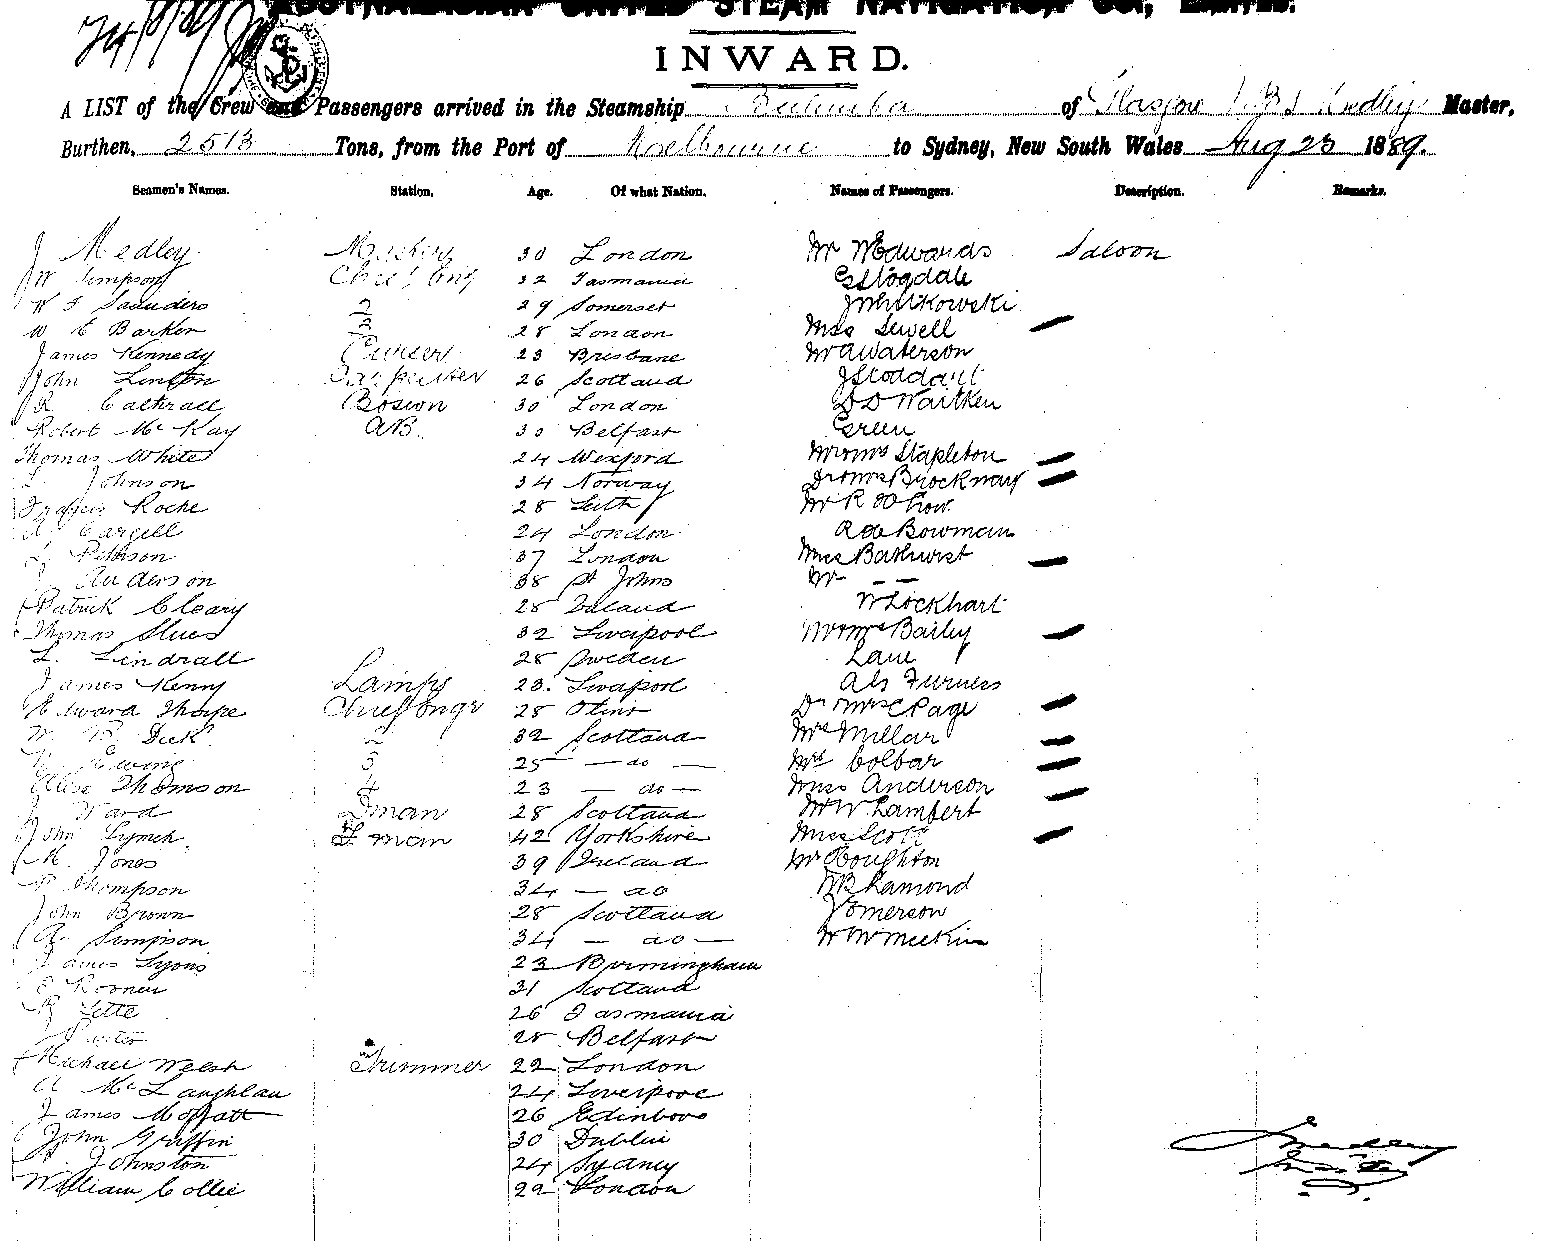 AUSTRALASIAN UNITED STEAM NAVIGATION CO., LIMITED.
INWARD.
A LIST of the Crew and Passengers arrived in the Steamship Bulimba of Glasgow Medley Master,
Burthen, 2513 Tons, from the Port of Melbourne to Sydney, New South Wales Aug 23 1889.
Seamen's Names. Station. Age. Of what Nation. Names of Passengers. Description. Remarks.
J Medley Master 30 London Mr W Edwards Saloon
W Simpson Chief Offr 32 Tasmania Stogdale
W F Saunders 2 29 Somerset
W E Barker 3 28 London Miss Sewell
James Kennedy Purser 23 Brisbane Mr A Waterson
John Linton Carpenter 26 Scotland J Stoddart
R Calkrall Bosun 30 London Waitken
Robert McKay AB. 30 Belfast Green
Thomas White 24 Wexford Mr & Mrs Stapleton
L Johnson 34 Norway Dr & Mrs Brockway
Francis Roche 28 Leith Mr R
A Cargill 24 London Bowman
Pettison 37 London Miss Bathurst
J Anderson 38 St Johns Mr — —
Patrick Cleary 28 Ireland W Lockhart
Thomas 32 Liverpool Mr & Mrs Bailey
L. Lindrall 28 Sweden Lane
James Kenny Lamps 23. Liverpool Als Furness
Edward Thorpe Chief Engr 28 Dr & Mrs C Page
W Dick 2 32 Scotland Mrs Millar
Ewing 3 25 — do — Mrs Colbar
Thomson 4 23 — do — Miss Anderson
J Ward Dman 28 Scotland Mr W Lambert
John Lynch F man 42 Yorkshire Miss Scott
M. Jones 39 Ireland Mr Houghton
P Thompson 34 — do Lamond
John Brown 28 Scotland J Omerson
A. Simpson 34 — do — W W Meekin
James Lyons 23 Birmingham
Rooney 31 Scotland
R Lette 26 Tasmania
28 Belfast
Michael Welsh Trimmer 22 London
A McLaughlan 24 Liverpool
James Moffatt 26 Edinboro
John Griffin 30 Dublin
J Johnston 24 Sydney
William Collie 22 London
J Medley
Master